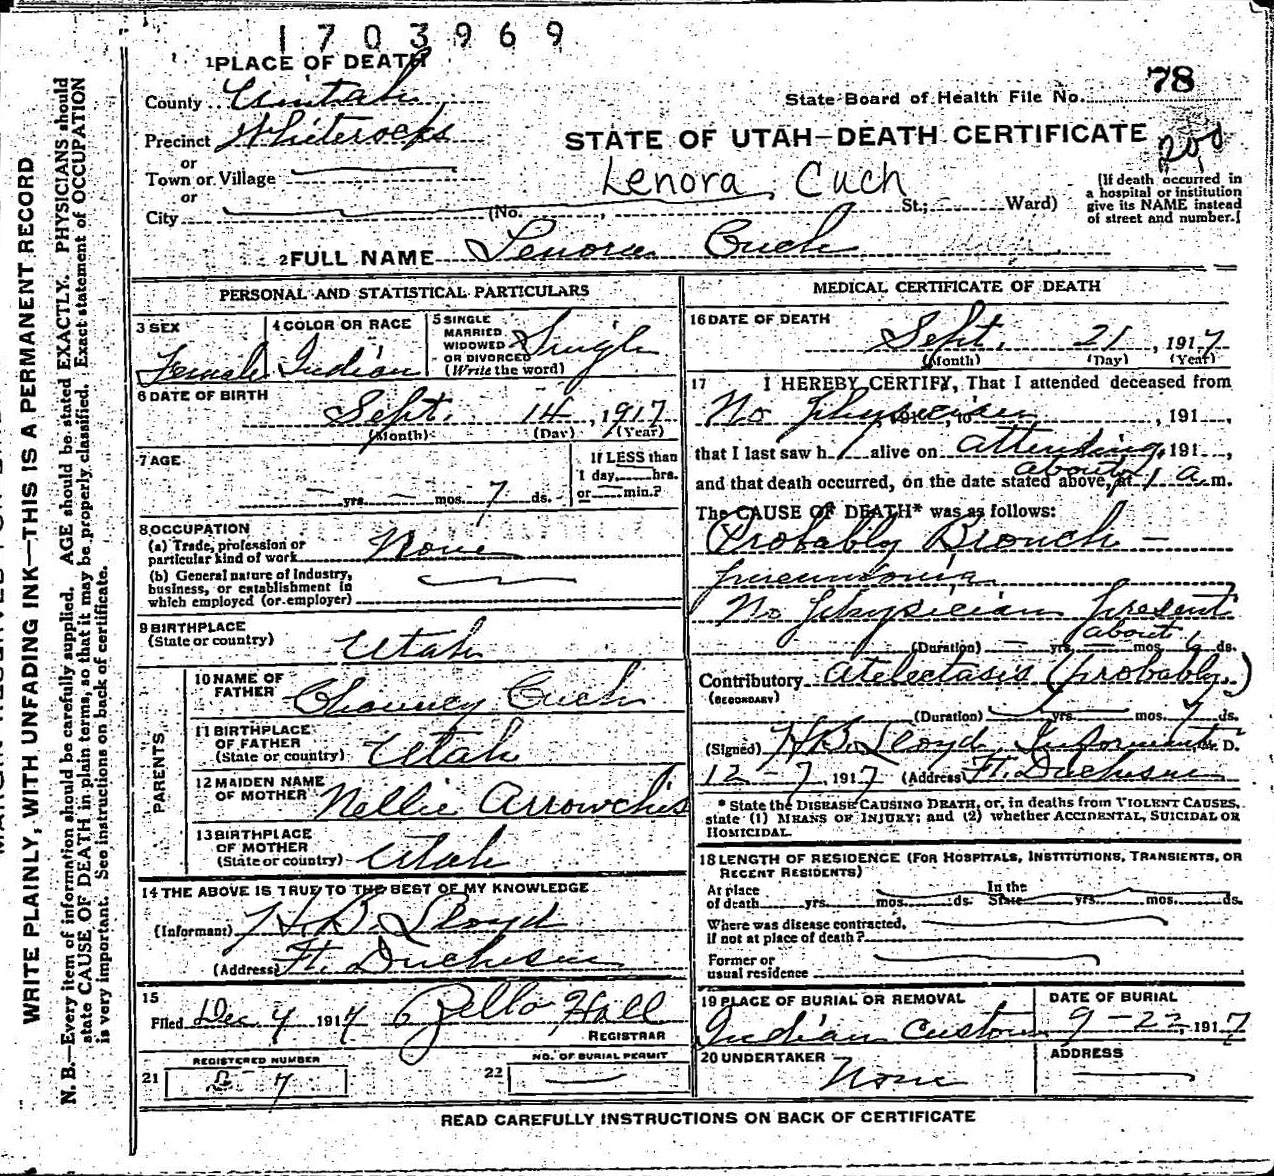 1703969
1 PLACE OF DEATH
County Uintah
State Board of Health File No. 78
Precinct Whiterocks
STATE OF UTAH—DEATH CERTIFICATE
or
Town or Village
Lenora Cuch
(If death occurred in
a hospital or institution
give its NAME instead
of street and number.[
or
City (No. , St.; Ward)
2 FULL NAME Lenora Cuch
PERSONAL AND STATISTICAL PARTICULARS
3 SEX
Female
4 COLOR OR RACE
Indian
5 SINGLE
MARRIED
WIDOWED
OR DIVORCED
(Write the word)
Single
6 DATE OF BIRTH
Sept. 14, 1917
(Month) (Day) (Year)
7 AGE
— yrs. — mos. 7 ds.
If LESS than
1 day, hrs.
or min.?
8 OCCUPATION
(a) Trade, profession or
particular kind of work None
(b) General nature of industry,
business, or establishment in
which employed (or employer)
9 BIRTHPLACE
(State or country) Utah
PARENTS
10 NAME OF
FATHER Chauncy Cuch
11 BIRTHPLACE
OF FATHER
(State or country) Utah
12 MAIDEN NAME
OF MOTHER Nellie Arrowchis
13 BIRTHPLACE
OF MOTHER
(State or country) Utah
14 THE ABOVE IS TRUE TO THE BEST OF MY KNOWLEDGE
(Informant) H. B. Lloyd
(Address) Ft. Duchesne
15
Filed Dec 7 1917 Zella Hall
REGISTRAR
REGISTERED NUMBER
21 7
NO. OF BURIAL PERMIT
22 —
MEDICAL CERTIFICATE OF DEATH
16 DATE OF DEATH
Sept. 21, 1917
(Month) (Day) (Year)
17 I HEREBY CERTIFY, That I attended deceased from
No physician , 191 ,
that I last saw h alive on attending, 191 ,
and that death occurred, on the date stated above, at about 1 a. m.
The CAUSE OF DEATH* was as follows:
Probably Bronch—
pneumonia
No physician present
(Duration) — yrs. — mos. about 6 ds.
Contributory Atelectasis (probably)
(SECONDARY)
(Duration) yrs. mos. 7 ds.
(Signed) H. B. Lloyd, Informant M. D.
12-7, 1917 (Address) Ft. Duchesne
* State the DISEASE CAUSING DEATH, or, in deaths from VIOLENT CAUSES,
state (1) MEANS OF INJURY; and (2) whether ACCIDENTAL, SUICIDAL OR
HOMICIDAL
18 LENGTH OF RESIDENCE (FOR HOSPITALS, INSTITUTIONS, TRANSIENTS, OR
RECENT RESIDENTS)
At place
of death yrs. mos. ds.
In the
State yrs. mos. ds.
Where was disease contracted,
if not at place of death?
Former or
usual residence
19 PLACE OF BURIAL OR REMOVAL
Indian Custom
DATE OF BURIAL
9-22 1917
20 UNDERTAKER
None
ADDRESS
READ CAREFULLY INSTRUCTIONS ON BACK OF CERTIFICATE
WRITE PLAINLY, WITH UNFADING INK—THIS IS A PERMANENT RECORD
N. B.—Every item of information should be carefully supplied. AGE should be stated EXACTLY. PHYSICIANS should
state CAUSE OF DEATH in plain terms, so that it may be properly classified. Exact statement of OCCUPATION
is very important. See instructions on back of certificate.